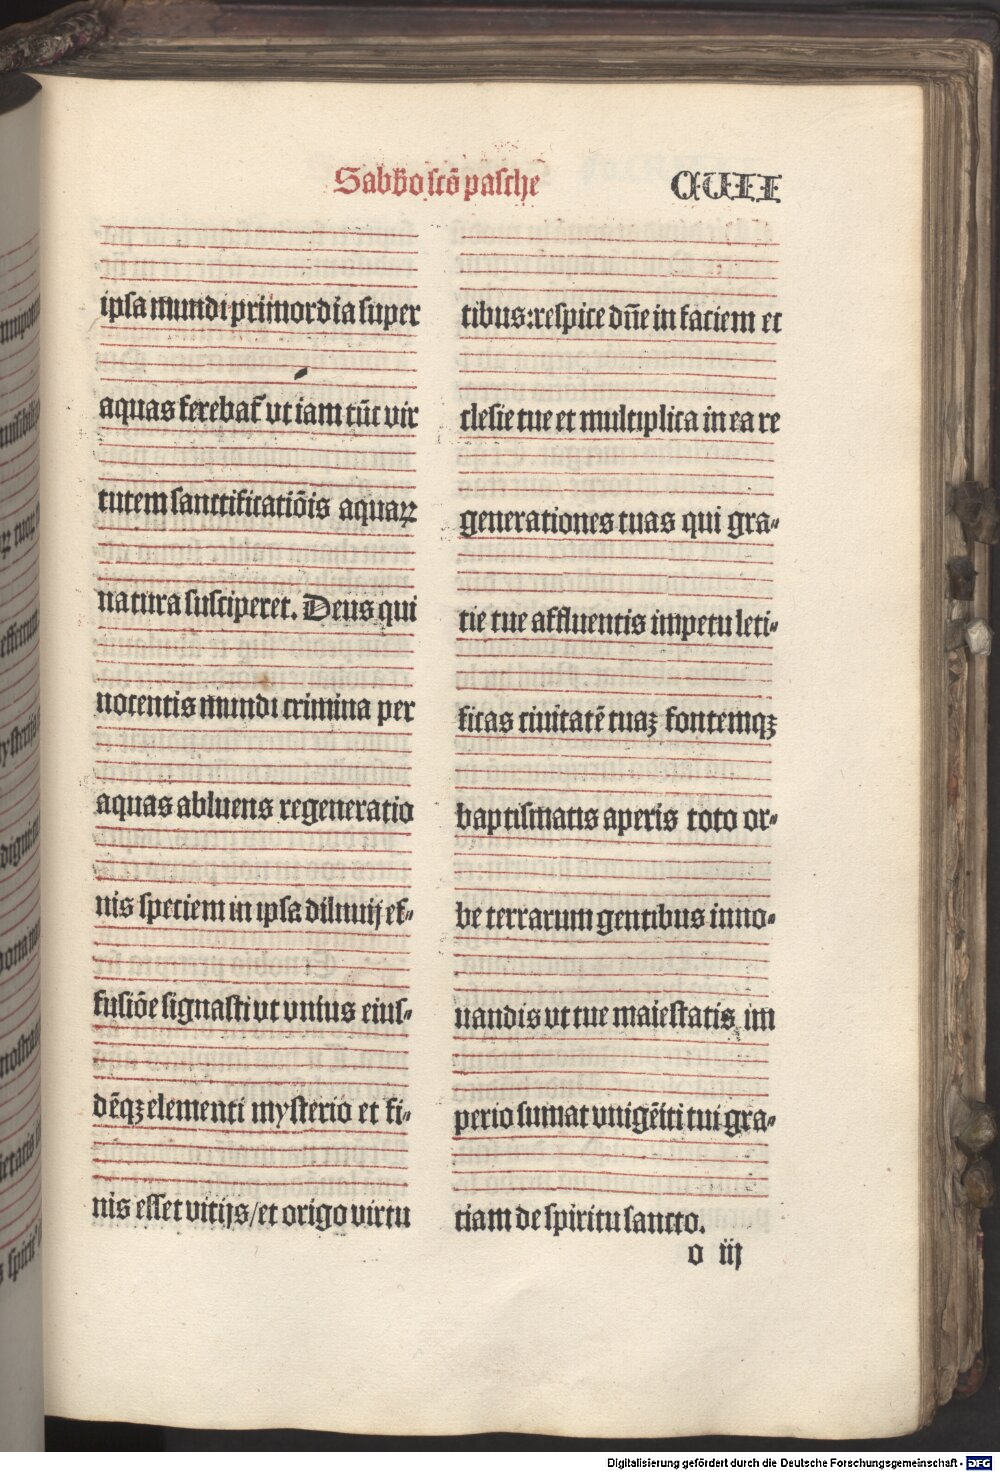 Sabb̄o sc̄o pasche
CVII
ipsa mundi primordia super
aquas ferebat᷑ ut iam tūc vir
tutem sanctificatiōis aquaꝝ
natura susciperet. Deus qui
nocentis mundi crimina per
aquas abluens regeneratio
nis speciem in ipsa diluuij ef⸗
fusiōe signasti ut vnius eius⸗
dēqꝫ elementi mysterio et fi⸗
nis esset vitijs/et origo virtu
tibus:respice dn̄e in faciem ec
clesie tue et multiplica in ea re
generationes tuas qui gra⸗
tie tue affluentis impetu leti⸗
ficas ciuitatē tuaꝫ fontemqꝫ
baptismatis aperis toto or⸗
be terrarum gentibus inno⸗
uandis ut tue maiestatis im
perio sumat vnigēiti tui gra⸗
tiam de spiritu sancto.
o iij
Digitalisierung gefördert durch die Deutsche Forschungsgemeinschaft - DFG